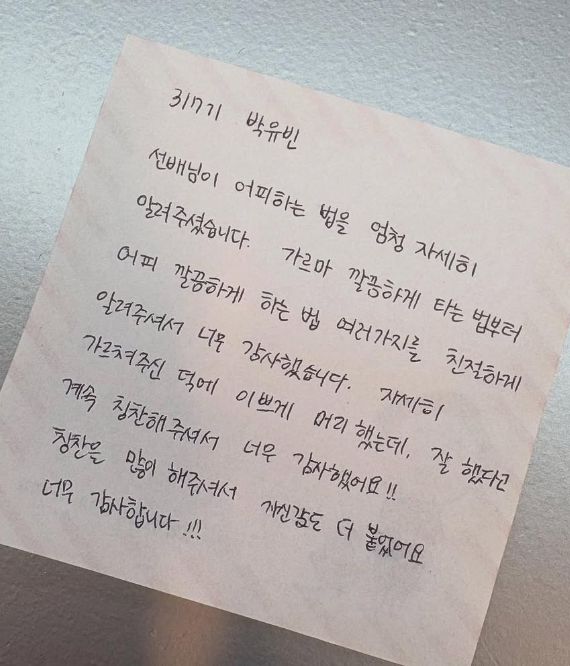 317기 박유빈
선배님이 어피하는 법을 엄청 자세히
알려주셨습니다. 가르마 깔끔하게 타는 법부터
어피 깔끔하게 하는 법 여러가지를 친절하게
알려주셔서 너무 감사했습니다. 자세히
가르쳐주신 덕에 이쁘게 머리 했는데, 잘 했다고
계속 칭찬해주셔서 너무 감사했어요!!
칭찬을 많이 해주셔서 자신감도 더 붙었어요
너무 감사합니다!!!